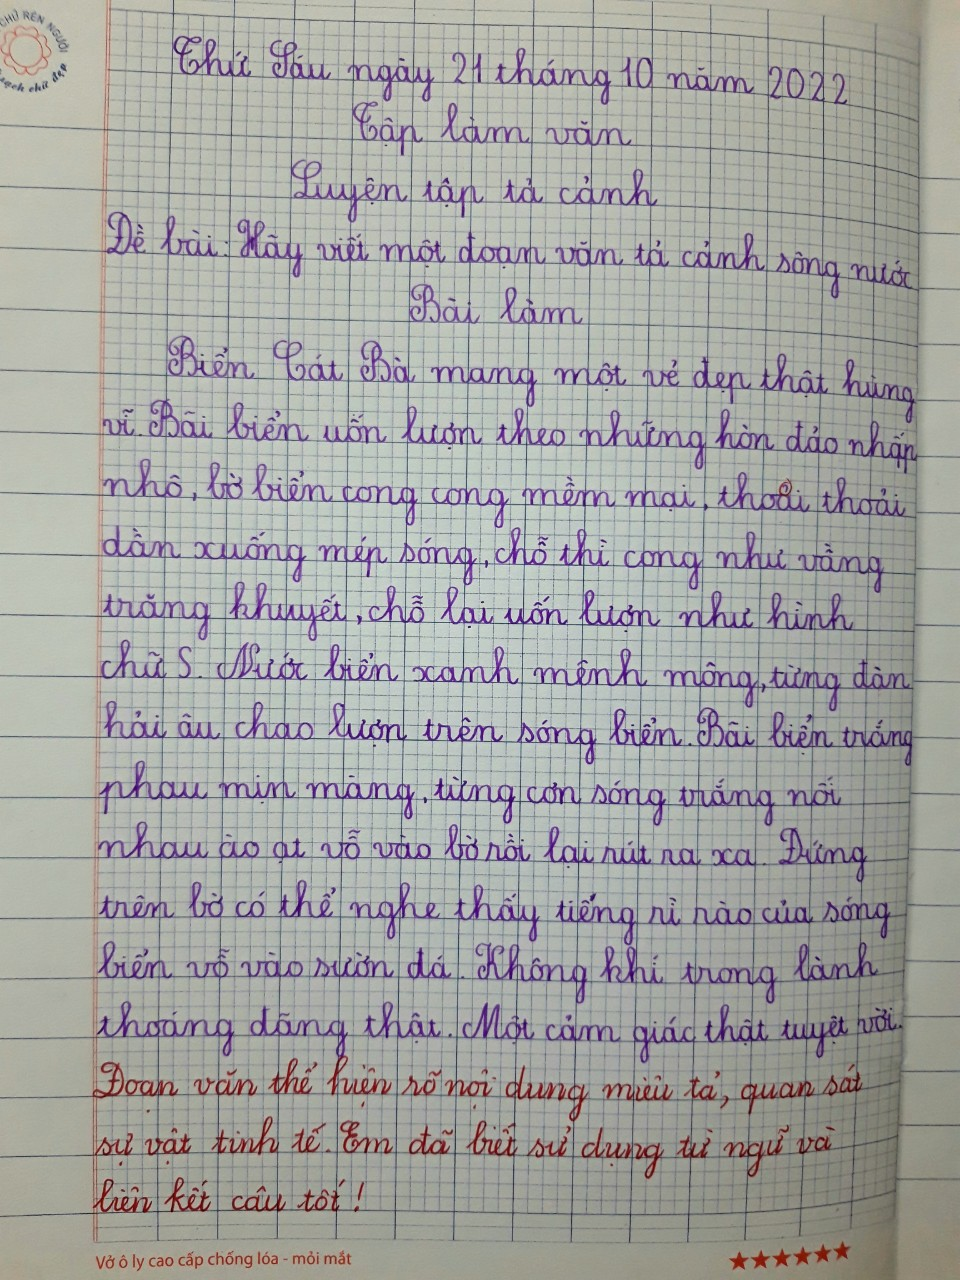 CHỮ RÈN NGƯỜI
sạch chữ đẹp
Thứ Sáu ngày 21 tháng 10 năm 2022
Tập làm văn
Luyện tập tả cảnh
Đề bài: Hãy viết một đoạn văn tả cảnh sông nước
Bài làm
Biển Cát Bà mang một vẻ đẹp thật hùng
vĩ. Bãi biển uốn lượn theo những hòn đảo nhấp
nhô, bờ biển cong cong mềm mại, thoai thoải
dần xuống mép sóng, chỗ thì cong như vầng
trăng khuyết, chỗ lại uốn lượn như hình
chữ S. Nước biển xanh mênh mông, từng đàn
hải âu chao lượn trên sóng biển. Bãi biển trắng
phau mịn màng, từng cơn sóng trắng nối
nhau ào ạt vỗ vào bờ rồi lại rút ra xa. Đứng
trên bờ có thể nghe thấy tiếng rì rào của sóng
biển vỗ vào sườn đá. Không khí trong lành
thoáng đãng thật. Một cảm giác thật tuyệt vời.
Đoạn văn thể hiện rõ nội dung miêu tả, quan sát
sự vật tinh tế. Em đã biết sử dụng từ ngữ và
liên kết câu tốt!
Vở ô ly cao cấp chống lóa - mỏi mắt